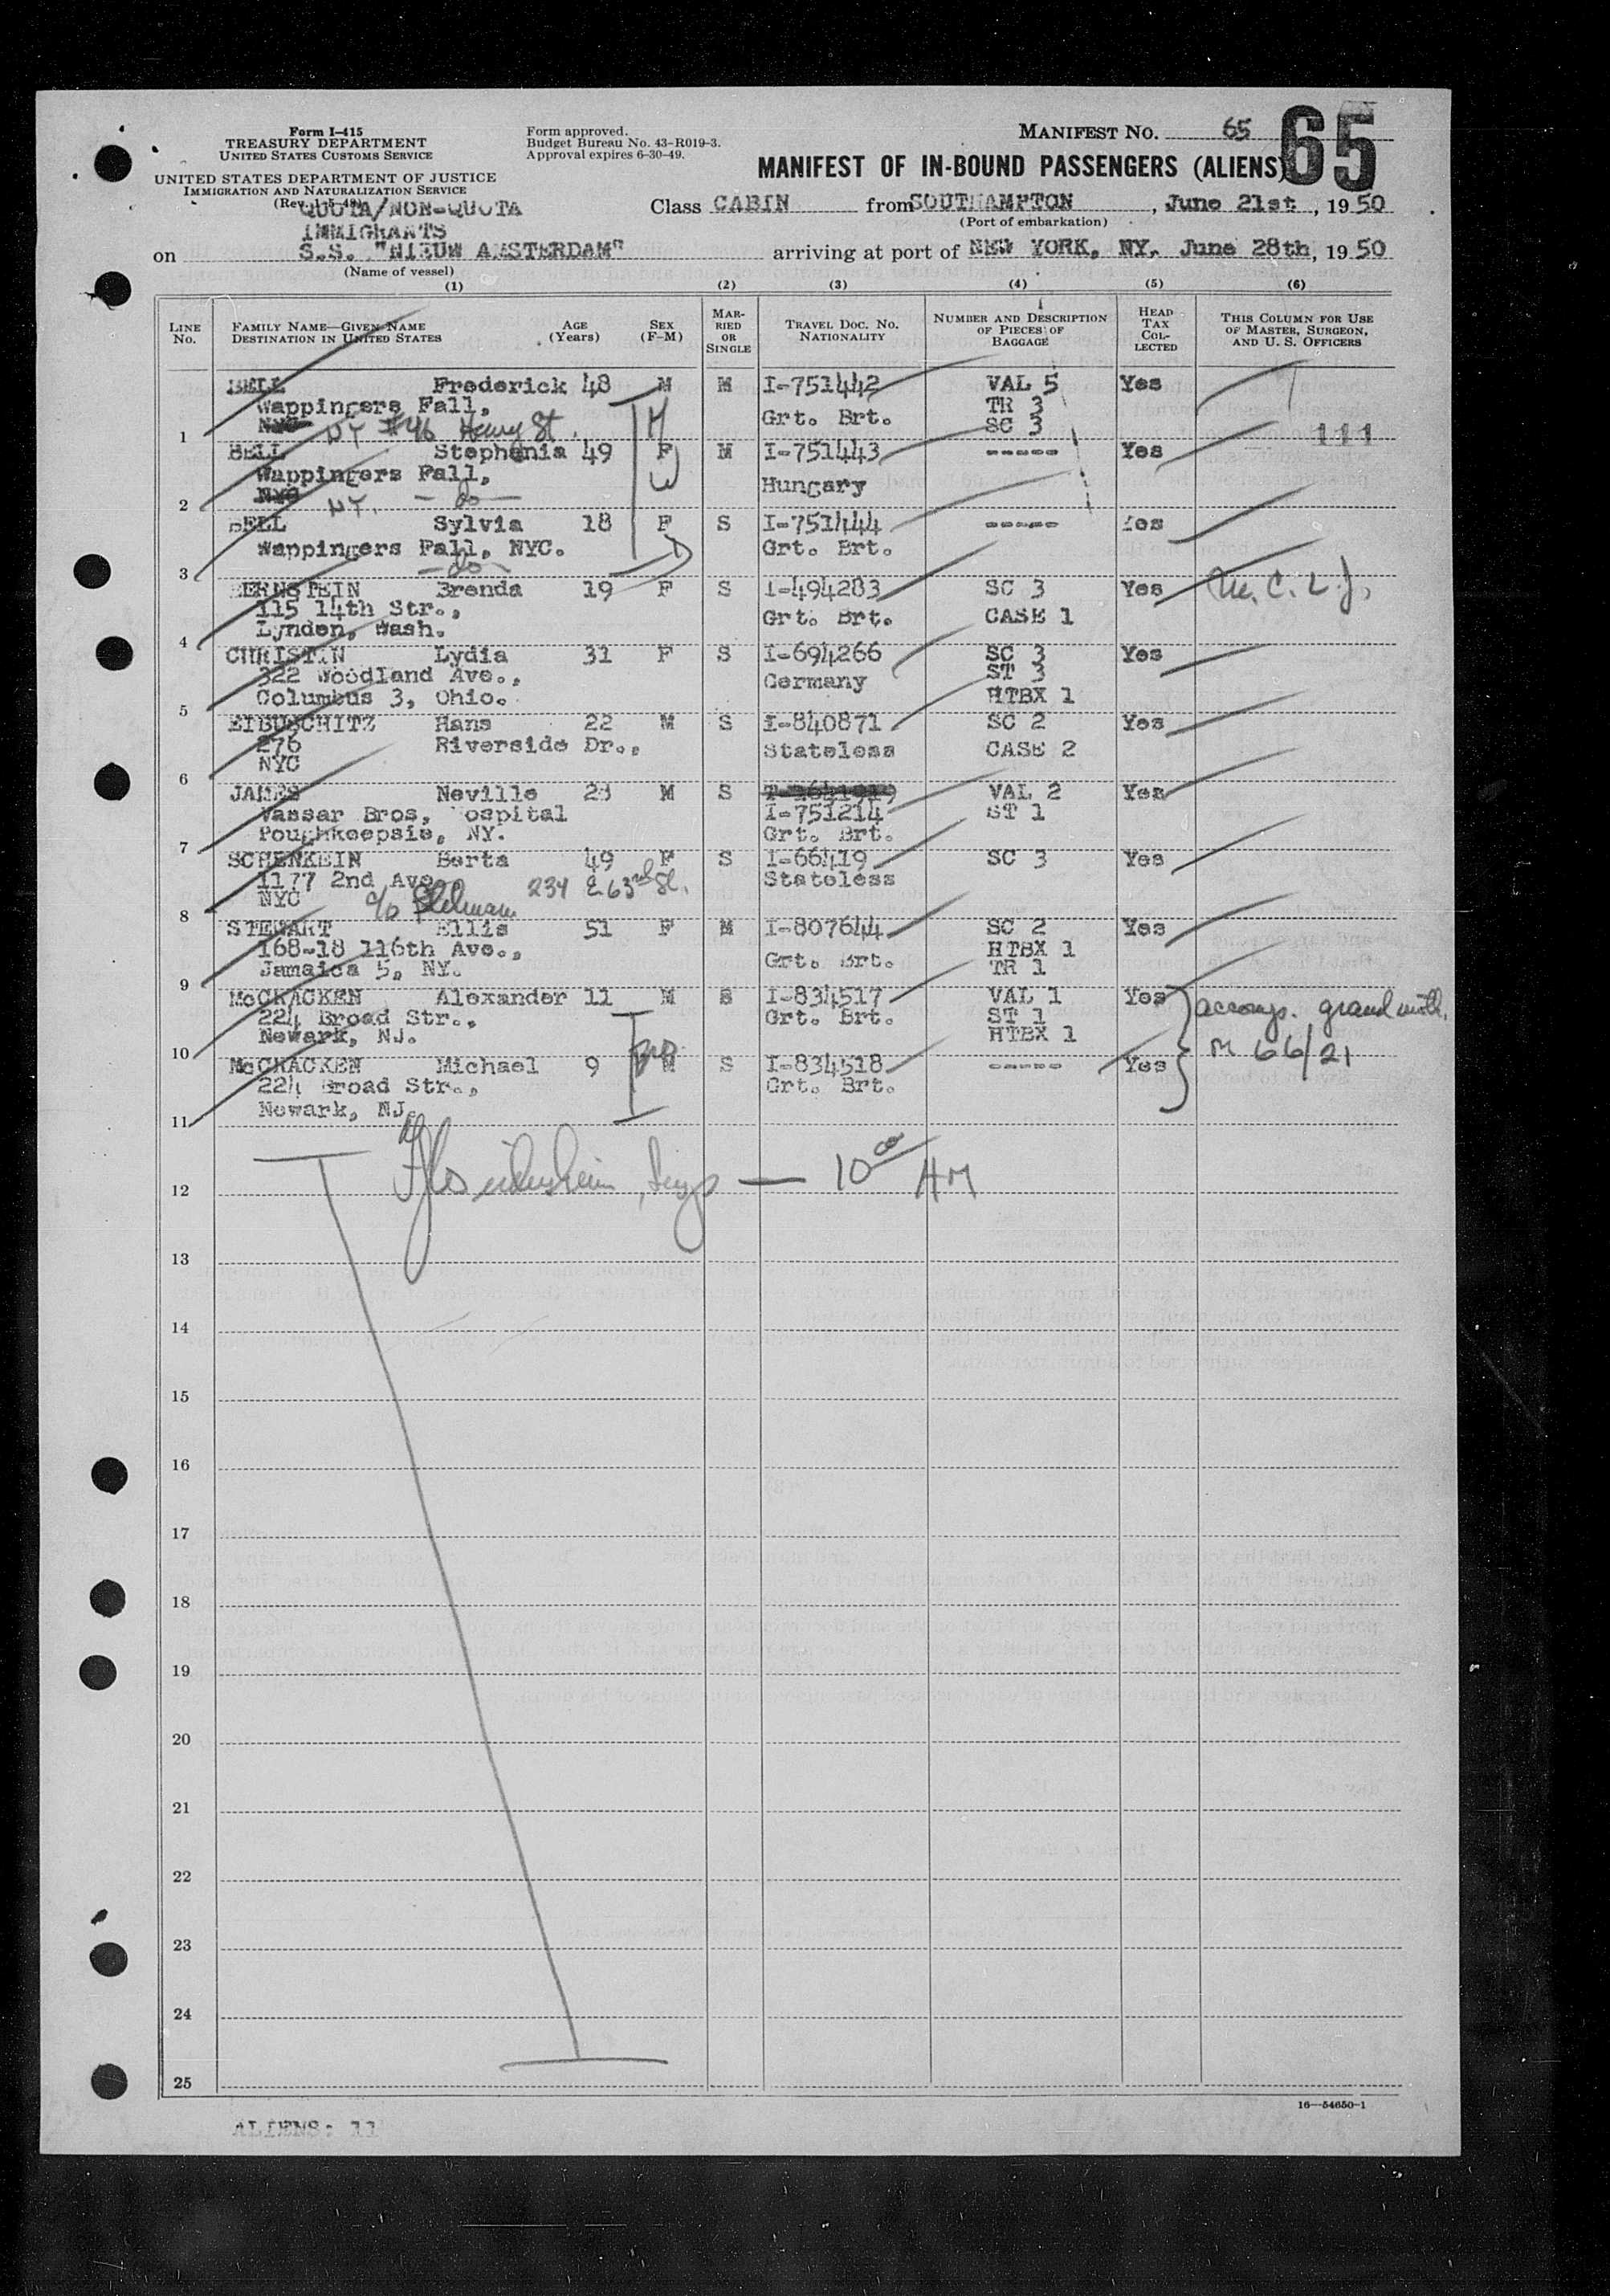 Form I-415
TREASURY DEPARTMENT
UNITED STATES CUSTOMS SERVICE
UNITED STATES DEPARTMENT OF JUSTICE
IMMIGRATION AND NATURALIZATION SERVICE
(Rev. 1-5-48)
Form approved.
Budget Bureau No. 43-R019-3.
Approval expires 6-30-49.
MANIFEST NO. 65
65
MANIFEST OF IN-BOUND PASSENGERS (ALIENS)
QUOTA/NON-QUOTA
IMMIGRANTS
Class CABIN from SOUTHAMPTON, June 21st, 1950
(Port of embarkation)
on S.S. "NIEUW AMSTERDAM" arriving at port of NEW YORK, NY. June 28th, 1950
(Name of vessel)
(1) (2) (3) (4) (5) (6)
LINE No. FAMILY NAME—GIVEN NAME DESTINATION IN UNITED STATES AGE (Years) SEX (F-M) MARRIED OR SINGLE TRAVEL DOC. NO. NATIONALITY NUMBER AND DESCRIPTION OF PIECES OF BAGGAGE HEAD TAX COLLECTED THIS COLUMN FOR USE OF MASTER, SURGEON, AND U. S. OFFICERS
BELL Frederick 48 M M I-751442 VAL 5 Yes
Wappingers Fall, TR 3
1 NYC NY #46 Henry St. Grt. Brt. SC 3
111
BELL Stephenia 49 F M I-751443 ----- Yes
Wappingers Fall, Hungary
2 NYC NY. -do-
BELL Sylvia 18 F S I-751444 ----- Yes
Wappingers Fall, NYC. Grt. Brt.
3 -do-
BERNSTEIN Brenda 19 F S I-494283 SC 3 Yes M.C.L.J.
115 14th Str., Grt. Brt. CASE 1
4 Lynden, Wash.
CHRISTIN Lydia 31 F S I-694266 SC 3 Yes
322 Woodland Ave., Germany ST 3
5 Columbus 3, Ohio. HTBX 1
EIBUSCHITZ Hans 22 M S I-840871 SC 2 Yes
276 Riverside Dr., Stateless CASE 2
6 NYC
JAMES Neville 23 M S VAL 2 Yes
Vassar Bros, ospital I-751214 ST 1
7 Poughkeepsie, NY. Grt. Brt.
SCHENKEIN Berta 49 F S I-66419 SC 3 Yes
1177 2nd Ave. 234 E 63rd St. Stateless
8 NYC c/o
STEWART Ellis 51 F M I-807644 SC 2 Yes
168-18 116th Ave., Grt. Brt. HTBX 1
9 Jamaica 5, NY. TR 1
McCRACKEN Alexander 11 M S I-834517 VAL 1 Yes accomp. grandmoth.
224 Broad Str., Grt. Brt. ST 1
10 Newark, NJ. HTBX 1 M 66/21
McCRACKEN Michael 9 M S I-834518 ----- Yes
224 Broad Str., Grt. Brt.
11 Newark, NJ.
12 Insp — 10 00 AM
13
14
15
16
17
18
19
20
21
22
23
24
25
16—54650-1
ALIENS: 11